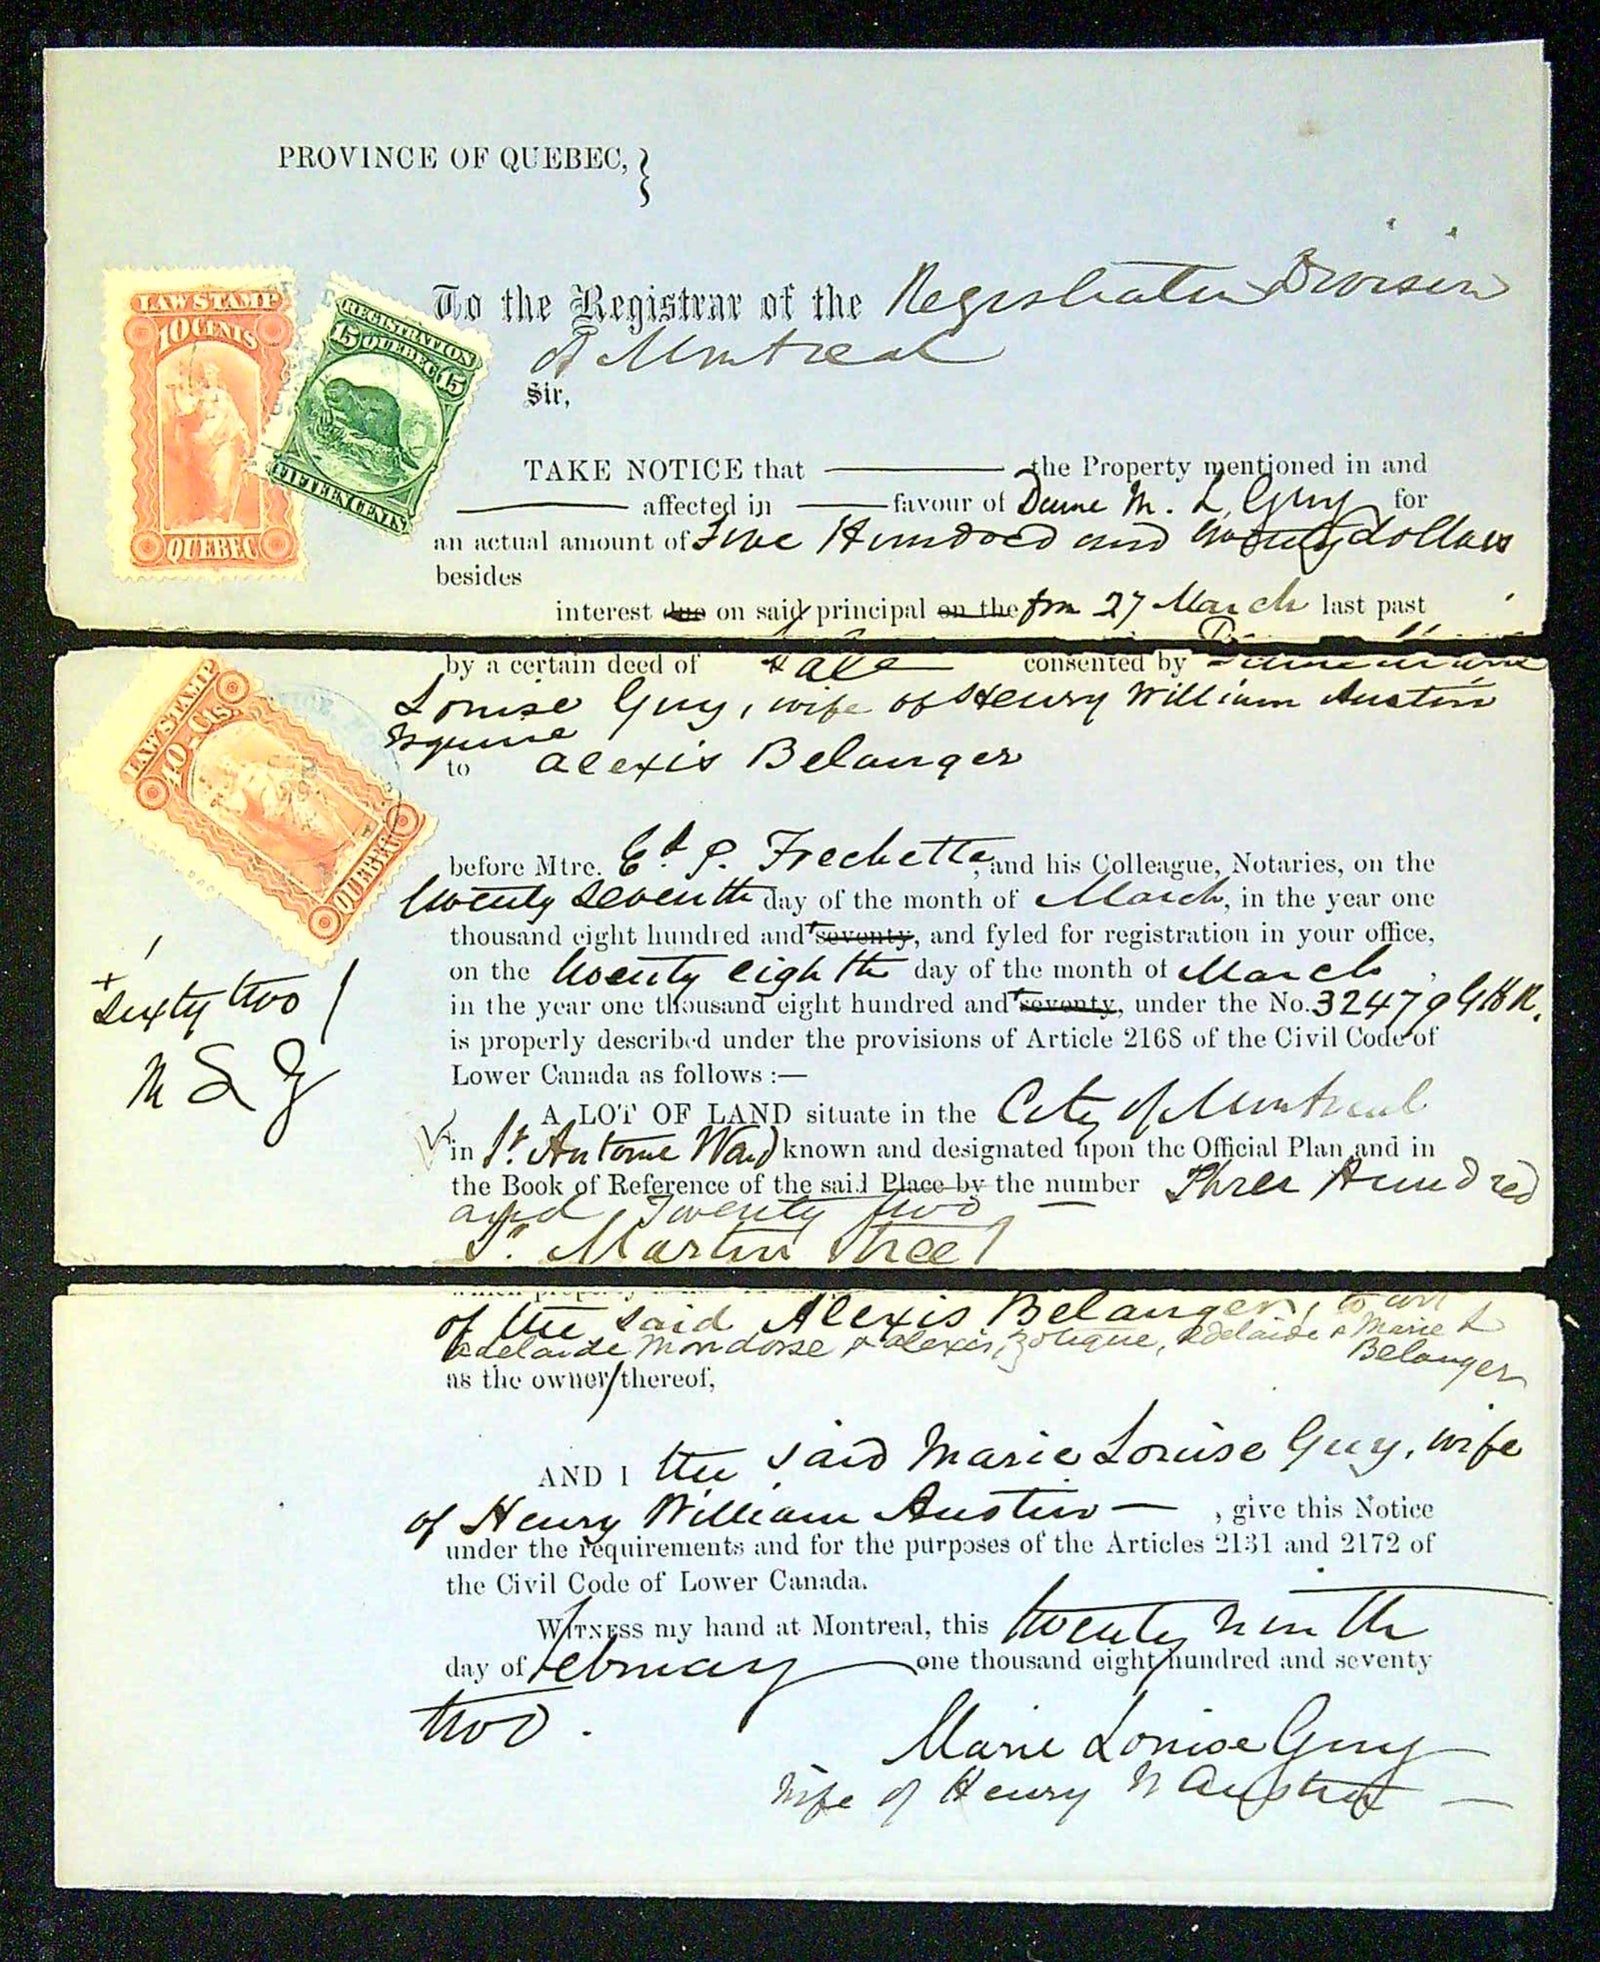 PROVINCE OF QUEBEC, }
LAW STAMP
10 CENTS
QUEBEC
REGISTRATION
15 QUEBEC 15
FIFTEEN CENTS
To the Registrar of the Registration Division
of Montreal
Sir,
TAKE NOTICE that the Property mentioned in and
affected in favour of Dame M. L. Guy for
an actual amount of Five Hundred and twenty dollars
besides
interest due on said principal on the from 27 March last past
by a certain deed of Sale consented by Dame Marie
Louise Guy, wife of Henry William Austin
Esquire
to Alexis Belanger
LAW STAMP
40-Cts
QUEBEC
before Mtre. Ed. P. Frechette, and his Colleague, Notaries, on the
twenty seventh day of the month of March, in the year one
thousand eight hundred and + seventy, and fyled for registration in your office,
on the twenty eighth day of the month of March,
in the year one thousand eight hundred and + seventy, under the No. 32479 G H R.
+ sixty two
M L G
is properly described under the provisions of Article 2168 of the Civil Code of
Lower Canada as follows :—
A LOT OF LAND situate in the City of Montreal
in St. Antoine Ward known and designated upon the Official Plan and in
the Book of Reference of the said Place by the number Three Hundred
and Twenty two —
St. Martin Street
of the said Alexis Belanger, to wit
Adelaide Mondorse & Alexis, Zotique, Adelaide & Marie L
Belanger
as the owner thereof,
AND I the said Marie Louise Guy, wife
of Henry William Austin — , give this Notice
under the requirements and for the purposes of the Articles 2131 and 2172 of
the Civil Code of Lower Canada.
WITNESS my hand at Montreal, this twenty ninth
day of February one thousand eight hundred and seventy
two.
Marie Louise Guy
Wife of Henry W Austin